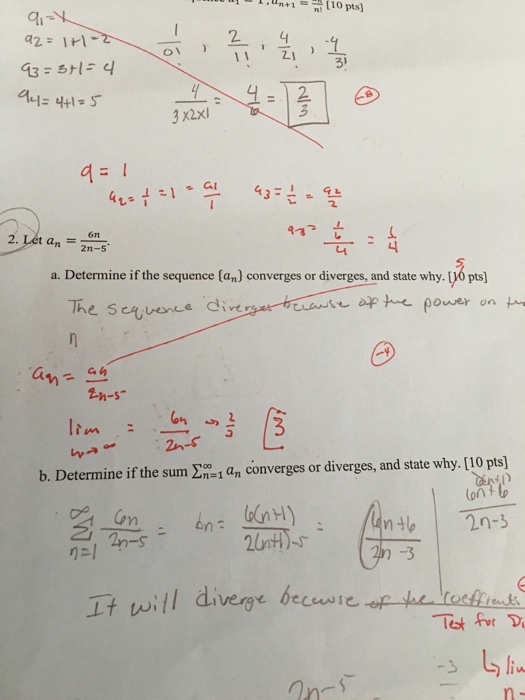 a_{n+1} = n! [10 pts]
a1=1
a2 = 1+1=2
a3 = 3+1=4
a4= 4+1=5
1/0! , 2/1! , 4/2! , 4/3!
4/3x2x1 = 4/6 = 2/3
-8
a = 1
a2 = 1/1 = 1 = a1/1
a3 = 1/2 = a2/2
2. Let a_n = 6n/2n−5.
a. Determine if the sequence {a_n} converges or diverges, and state why. [10 pts]
5
The sequence diverges because of the power on
n
-4
2n-5
lim n→∞ = 6n/2n-5 3
b. Determine if the sum ∑_{n=1}^∞ a_n converges or diverges, and state why. [10 pts]
∞∑n=1 6n/2n-5 = bn = 6(n+1)/2(n+1)-5 = 6n+6/2n-3
6(n+1)
6n+6
2n-3
It will diverge because of the coefficients
Test for
-3
2n-5